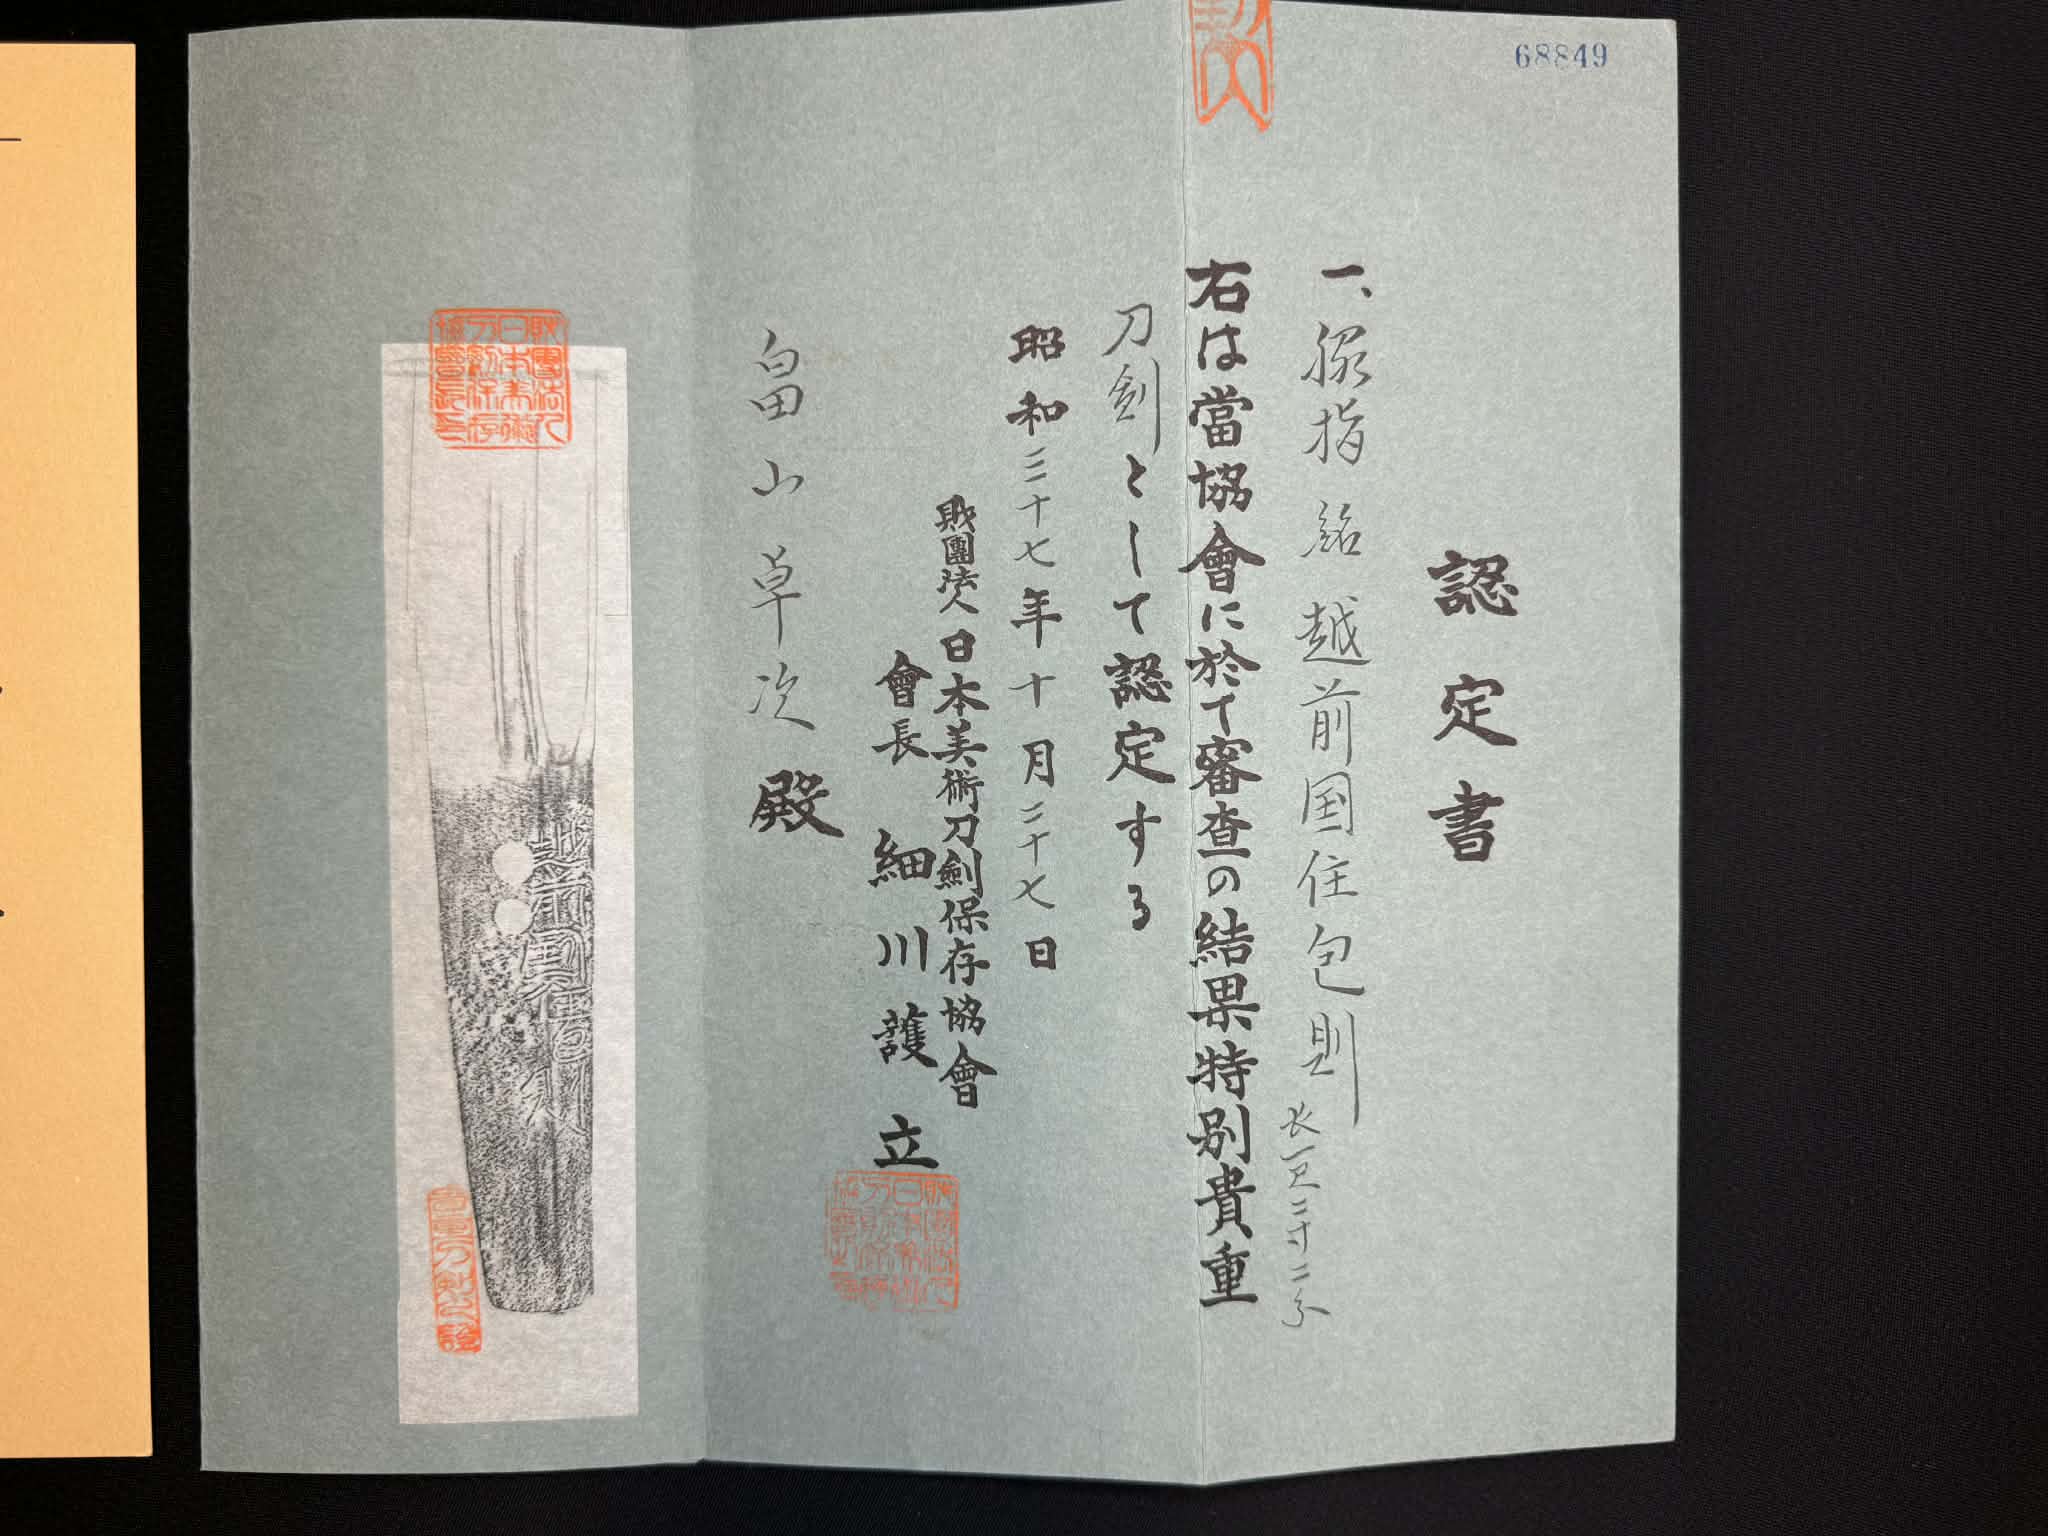 68849
認定書
一、脇指 銘 越前国住包則 長一尺二寸二分
右は當協會に於て審査の結果特別貴重
刀剣として認定する
昭和三十七年十月二十七日
財團法人日本美術刀劍保存協會
會長 細川護立
畠山卓次殿
越前國住包則